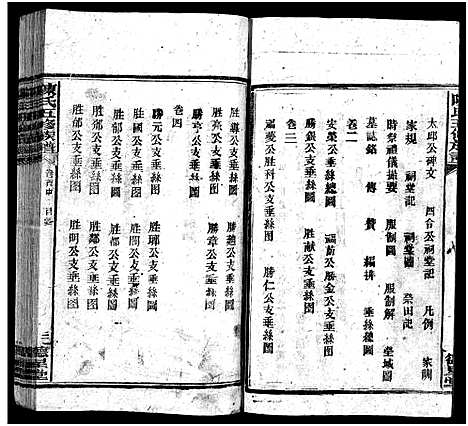 太邱公碑文
四合公祠堂記
凡例
家訓
家規
祠堂圖
祠堂記
祭田記
時祭禮儀撮要
服制圖
服制解
墓域圖
卷二
墓誌銘
傳
贊
編排
垂絲總圖
安榮公支垂絲總圖
勝金公支垂絲圖
勝銀公支垂絲圖
胜献公支垂絲圖
卷三
榮公胜科公支垂絲圖
勝仁公支垂絲圖
陳氏五修族譜
卷首中
目錄
勝公支垂絲圖
勝公支垂絲圖
胜亮公支垂絲圖
勝章公支垂絲圖
卷四
勝元公支垂絲圖
胜耶公支垂絲圖
胜國公支垂絲圖
胜都公支垂絲圖
胜郁公支垂絲图
胜鄰公支垂絲图
胜邵公支垂絲图
胜明公支垂絲图
二